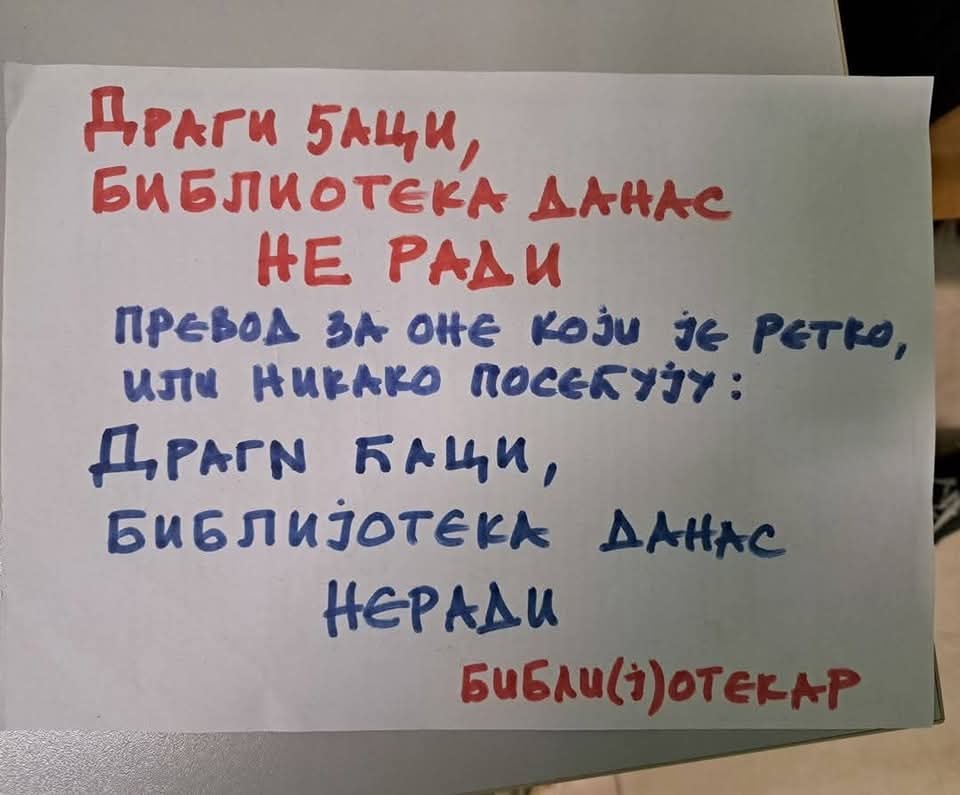 ДРАГИ ЂАЦИ,
БИБЛИОТЕКА ДАНАС
НЕ РАДИ
ПРЕВОД ЗА ОНЕ КОЈИ ЈЕ РЕТКО,
ИЛИ НИКАКО ПОСЕЋУЈУ:
ДРАГИ ЋАЦИ,
БИБЛИЈОТЕКА ДАНАС
НЕРАДИ
БИБЛИ(Ј)ОТЕКАР